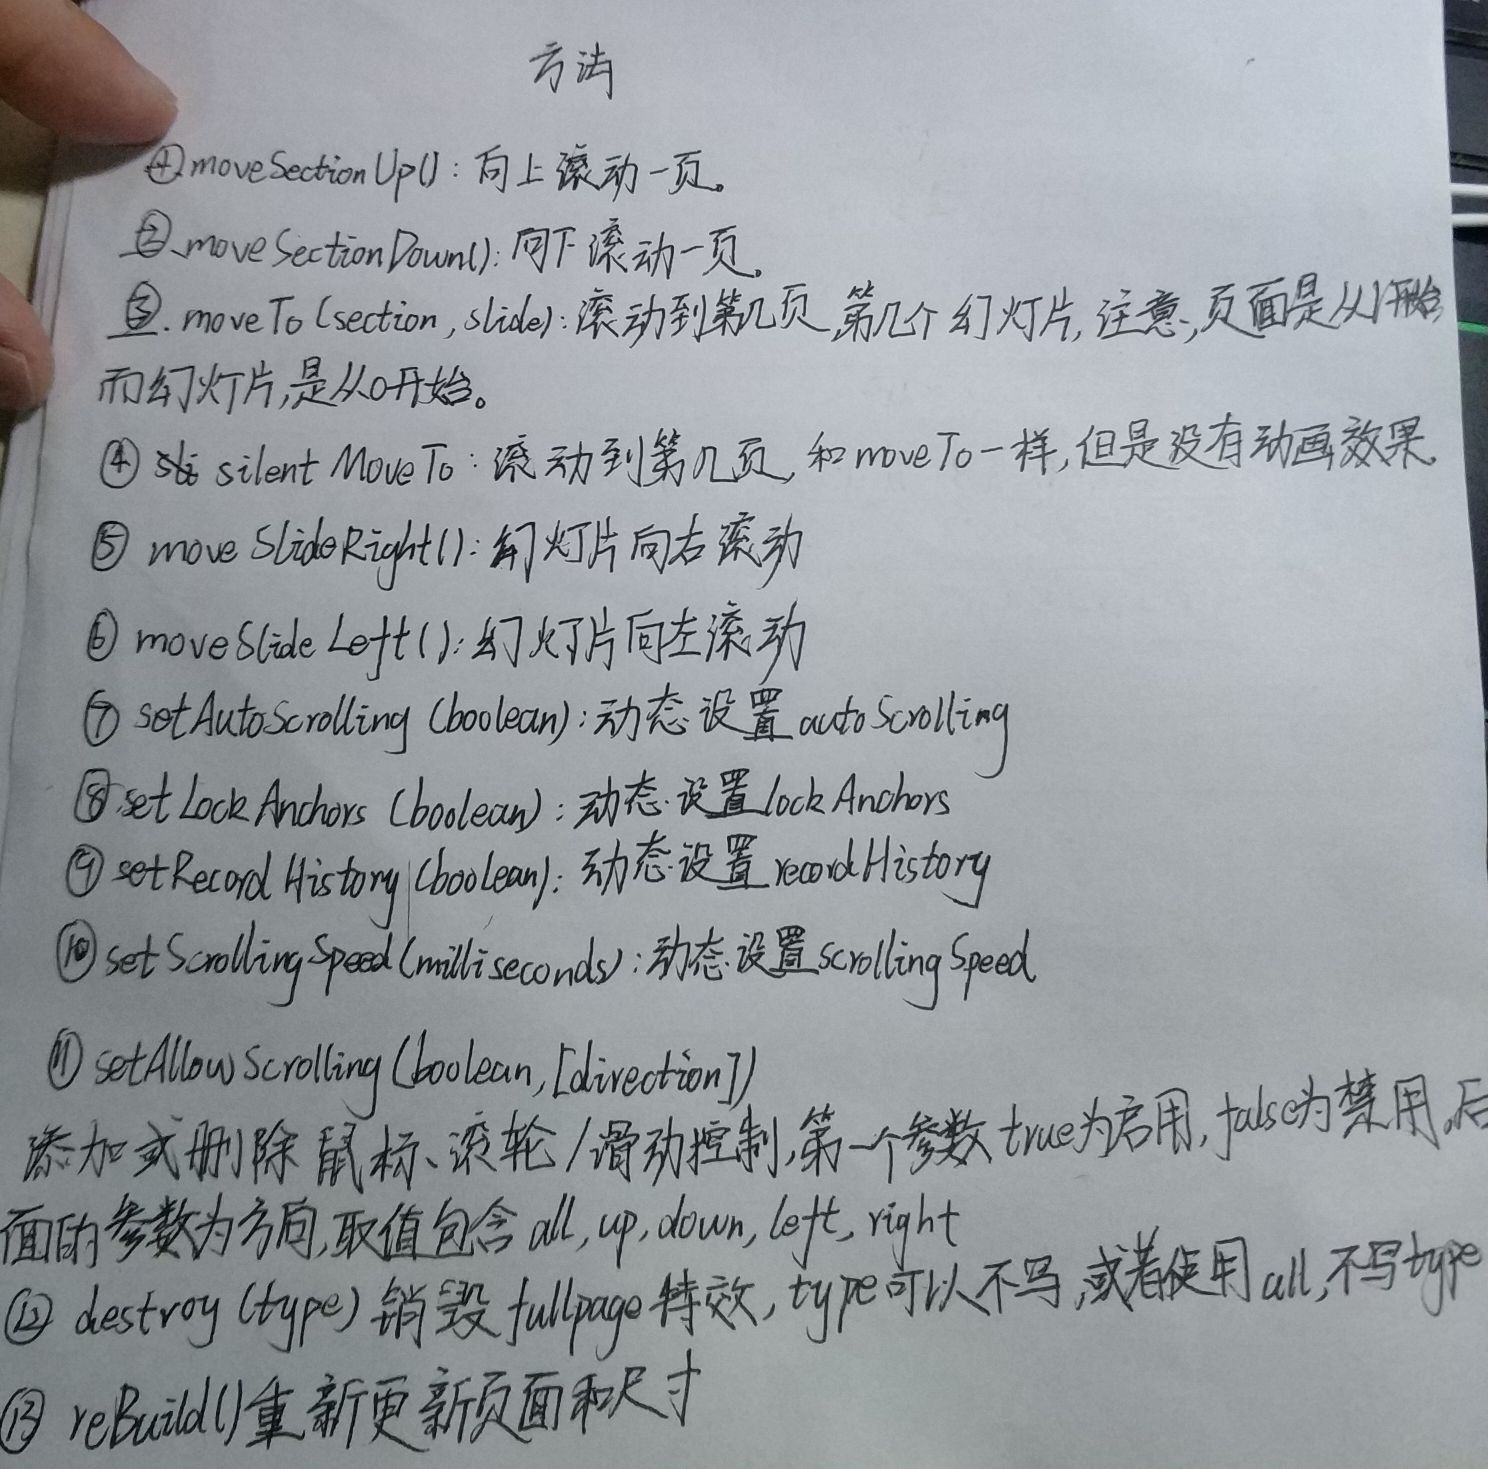 方法
①moveSectionUp()：向上滚动一页。
②、moveSectionDown()：向下滚动一页。
③. moveTo(section, slide)：滚动到第几页,第几个幻灯片,注意,页面是从1开始,
而幻灯片,是从0开始。
④ silent MoveTo：滚动到第几页,和moveTo一样,但是没有动画效果.
⑤ moveSlideRight()：幻灯片向右滚动
⑥ moveSlideLeft()：幻灯片向左滚动
⑦ setAutoScrolling (boolean)：动态设置autoScrolling
⑧ setLockAnchors (boolean)：动态设置lockAnchors
⑨ setRecordHistory (boolean)：动态设置recordHistory
⑩ setScrollingSpeed(milliseconds)：动态设置scrollingSpeed
⑪ setAllowScrolling(boolean,[direction])
添加或删除鼠标、滚轮/滑动控制,第一个参数true为启用,false为禁用,后
面的参数为方向,取值包含all,up,down,left,right
⑫ destroy (type) 销毁fullpage特效,type可以不写,或者使用all,不写type
⑬ reBuild()重新更新页面和尺寸